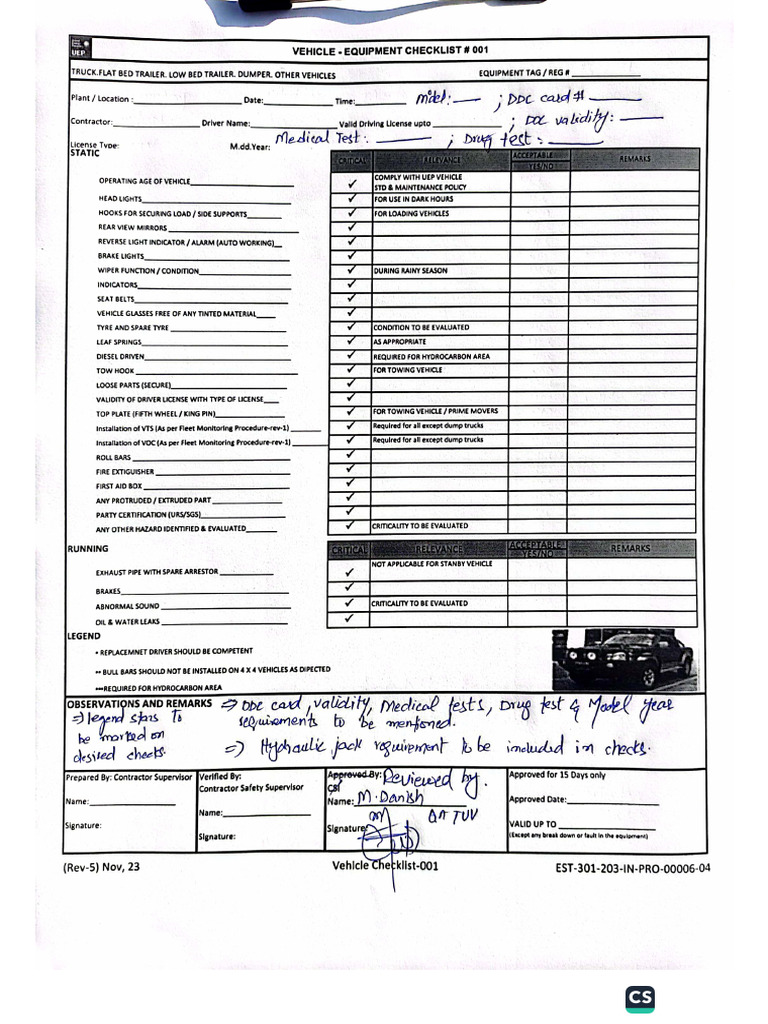 UEP
VEHICLE - EQUIPMENT CHECKLIST # 001
TRUCK.FLAT BED TRAILER. LOW BED TRAILER. DUMPER. OTHER VEHICLES EQUIPMENT TAG / REG # ____________
Plant / Location : ____________ Date:____________ Time:____________ Model: — ; DDC card # ———
Contractor:____________ Driver Name:____________ Valid Driving License upto ____________ ; DDC validity: ——
License Type: M.dd.Year: Medical Test: —— ; Drug test: ——
STATIC CRITICAL RELEVANCE ACCEPTABLE YES/NO REMARKS
OPERATING AGE OF VEHICLE____________ ✓ COMPLY WITH UEP VEHICLE
STD & MAINTENANCE POLICY
HEAD LIGHTS____________ ✓ FOR USE IN DARK HOURS
HOOKS FOR SECURING LOAD / SIDE SUPPORTS____________ ✓ FOR LOADING VEHICLES
REAR VIEW MIRRORS ____________ ✓
REVERSE LIGHT INDICATOR / ALARM (AUTO WORKING)__ ✓
BRAKE LIGHTS____________ ✓
WIPER FUNCTION / CONDITION____________ ✓ DURING RAINY SEASON
INDICATORS____________ ✓
SEAT BELTS____________ ✓
VEHICLE GLASSES FREE OF ANY TINTED MATERIAL____ ✓
TYRE AND SPARE TYRE ____________ ✓ CONDITION TO BE EVALUATED
LEAF SPRINGS____________ ✓ AS APPROPRIATE
DIESEL DRIVEN____________ ✓ REQUIRED FOR HYDROCARBON AREA
TOW HOOK ____________ ✓ FOR TOWING VEHICLE
LOOSE PARTS (SECURE)____________ ✓
VALIDITY OF DRIVER LICENSE WITH TYPE OF LICENSE____ ✓
TOP PLATE (FIFTH WHEEL / KING PIN)____________ ✓ FOR TOWING VEHICLE / PRIME MOVERS
Installation of VTS (As per Fleet Monitoring Procedure-rev-1) ________ ✓ Required for all except dump trucks
Installation of VDC (As per Fleet Monitoring Procedure-rev-1) ________ ✓ Required for all except dump trucks
ROLL BARS ____________ ✓
FIRE EXTIGUISHER ____________ ✓
FIRST AID BOX ____________ ✓
ANY PROTRUDED / EXTRUDED PART ____________ ✓
PARTY CERTIFICATION (URS/SGS)____________ ✓
ANY OTHER HAZARD IDENTIFIED & EVALUATED________ ✓ CRITICALITY TO BE EVALUATED
RUNNING CRITICAL RELEVANCE ACCEPTABLE YES/NO REMARKS
EXHAUST PIPE WITH SPARE ARRESTOR ____________ ✓ NOT APPLICABLE FOR STANBY VEHICLE
BRAKES____________ ✓
ABNORMAL SOUND ____________ ✓ CRITICALITY TO BE EVALUATED
OIL & WATER LEAKS ____________ ✓
LEGEND
* REPLACEMNET DRIVER SHOULD BE COMPETENT
** BULL BARS SHOULD NOT BE INSTALLED ON 4 X 4 VEHICLES AS DIPECTED
***REQUIRED FOR HYDROCARBON AREA
OBSERVATIONS AND REMARKS ⇒ DDC card, validity, Medical tests, Drug test & Model year
requirements to be mentioned.
⇒ legend stars to
be marked on
desired checks.
⇒ Hydraulic jack requirement to be included in checks.
Prepared By: Contractor Supervisor
Name:____________
Signature:
Verified By:
Contractor Safety Supervisor
Name:____________
Signature:
Approved By: Reviewed by.
CSI
Name: M. Danish
TUV
Signature:
Approved for 15 Days only
Approved Date:____________
VALID UP TO____________
(Except any break down or fault in the equipment)
(Rev-5) Nov, 23 Vehicle Checklist-001 EST-301-203-IN-PRO-00006-04
CS